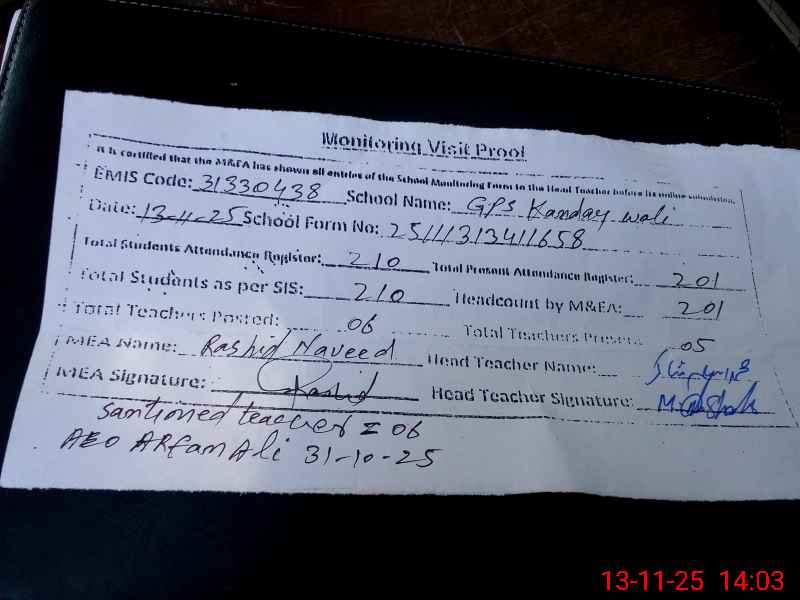 Monitoring Visit Proof
It is certified that the M&EA has shown all entries of the School Monitoring Form to the Head Teacher before its online submission.
EMIS Code: 31330438 School Name: GPS Kanday wali
Date: 13-11-25 School Form No: 25111313411658
Total Students Attendance Register: 210 Total Present Attendance Register: 201
Total Students as per SIS: 210 Headcount by M&EA: 201
Total Teachers Posted: 06 Total Teachers Present: 05
MEA Name: Rashid Naveed Head Teacher Name:
MEA Signature: Rashid Head Teacher Signature:
Santioned teacher = 06
AEO ARfan Ali 31-10-25
13-11-25 14:03